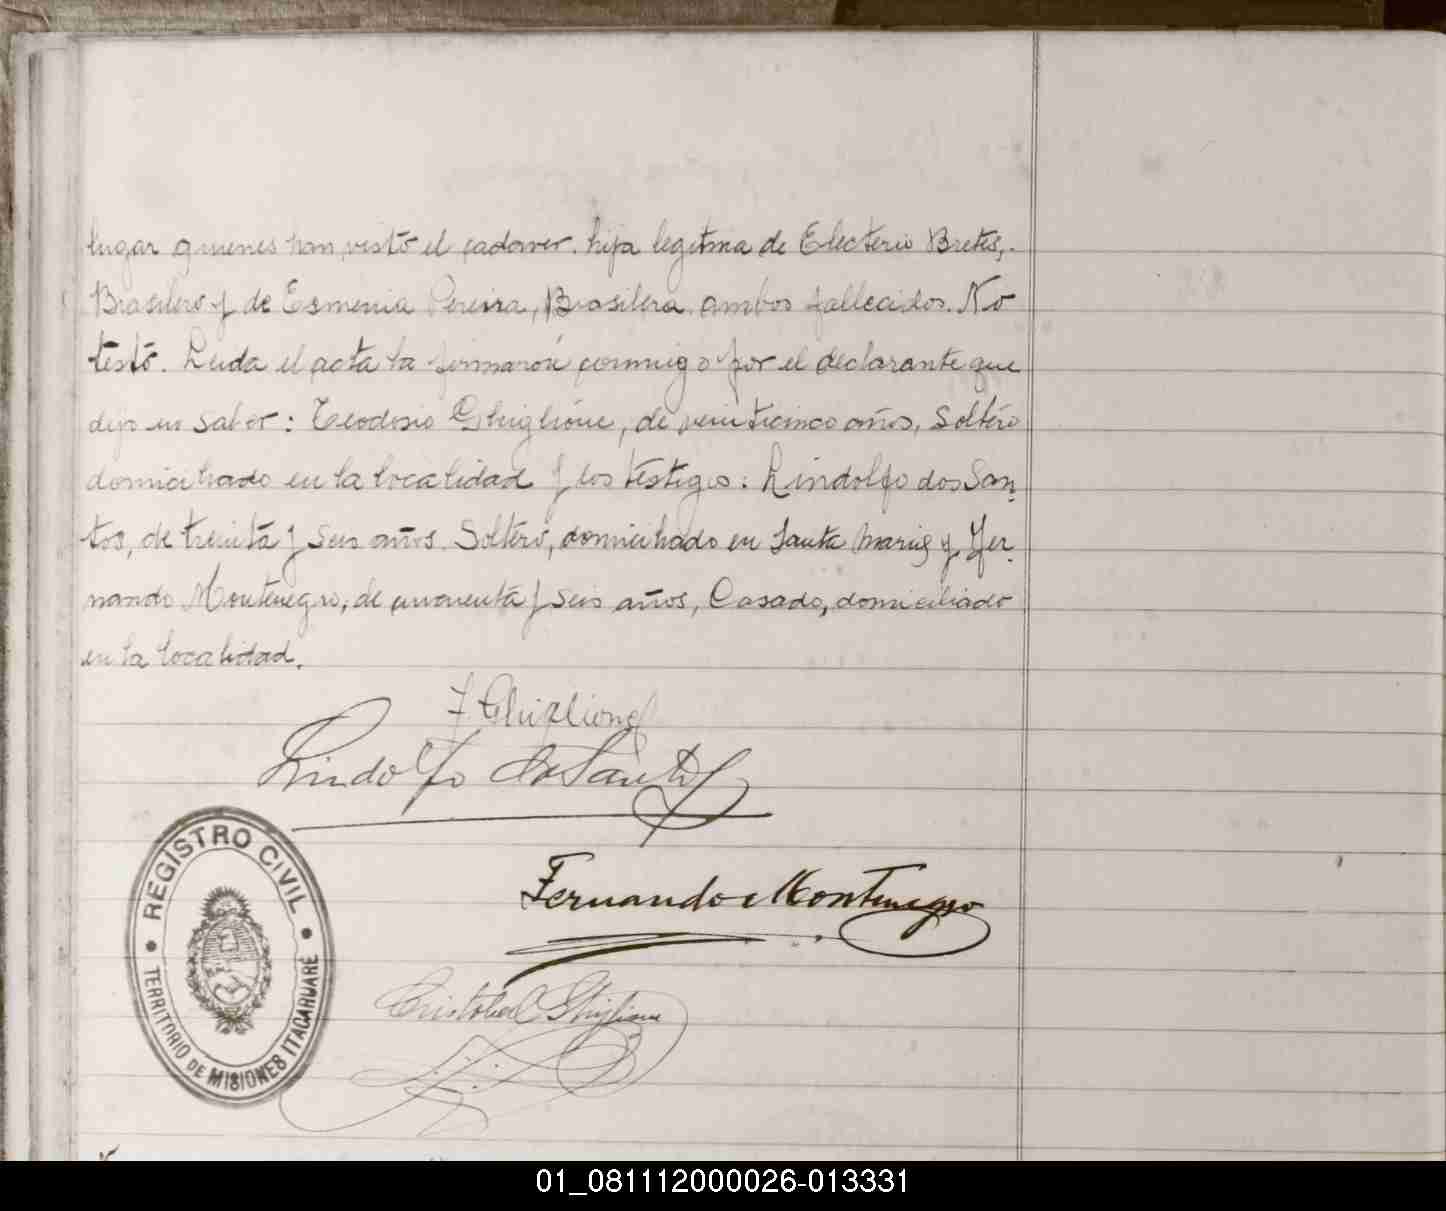 lugar quienes han visto el cadaver. hija legitima de Electerio Bretes,
Brasilero y de Esmenia Pereira, Brasilera, ambos fallecidos. No
testó. Leida el acta la firmaron conmigo por el declarante que
dijo no saber: Teodosio Ghiglione, de veinticinco años, Soltero
domiciliado en la localidad y los testigos: Lindolfo dos San-
tos, de treinta y seis años. Soltero, domiciliado en Santa Maria y Fer-
nando Montenegro, de cuarenta y seis años, Casado, domiciliado
en la localidad.
T Ghiglione
Lindolfo do Santos
REGISTRO CIVIL
TERRITORIO DE MISIONES ITACARUARÉ
Fernando Montenegro
Cristobal Ghiglione
01_081112000026-013331